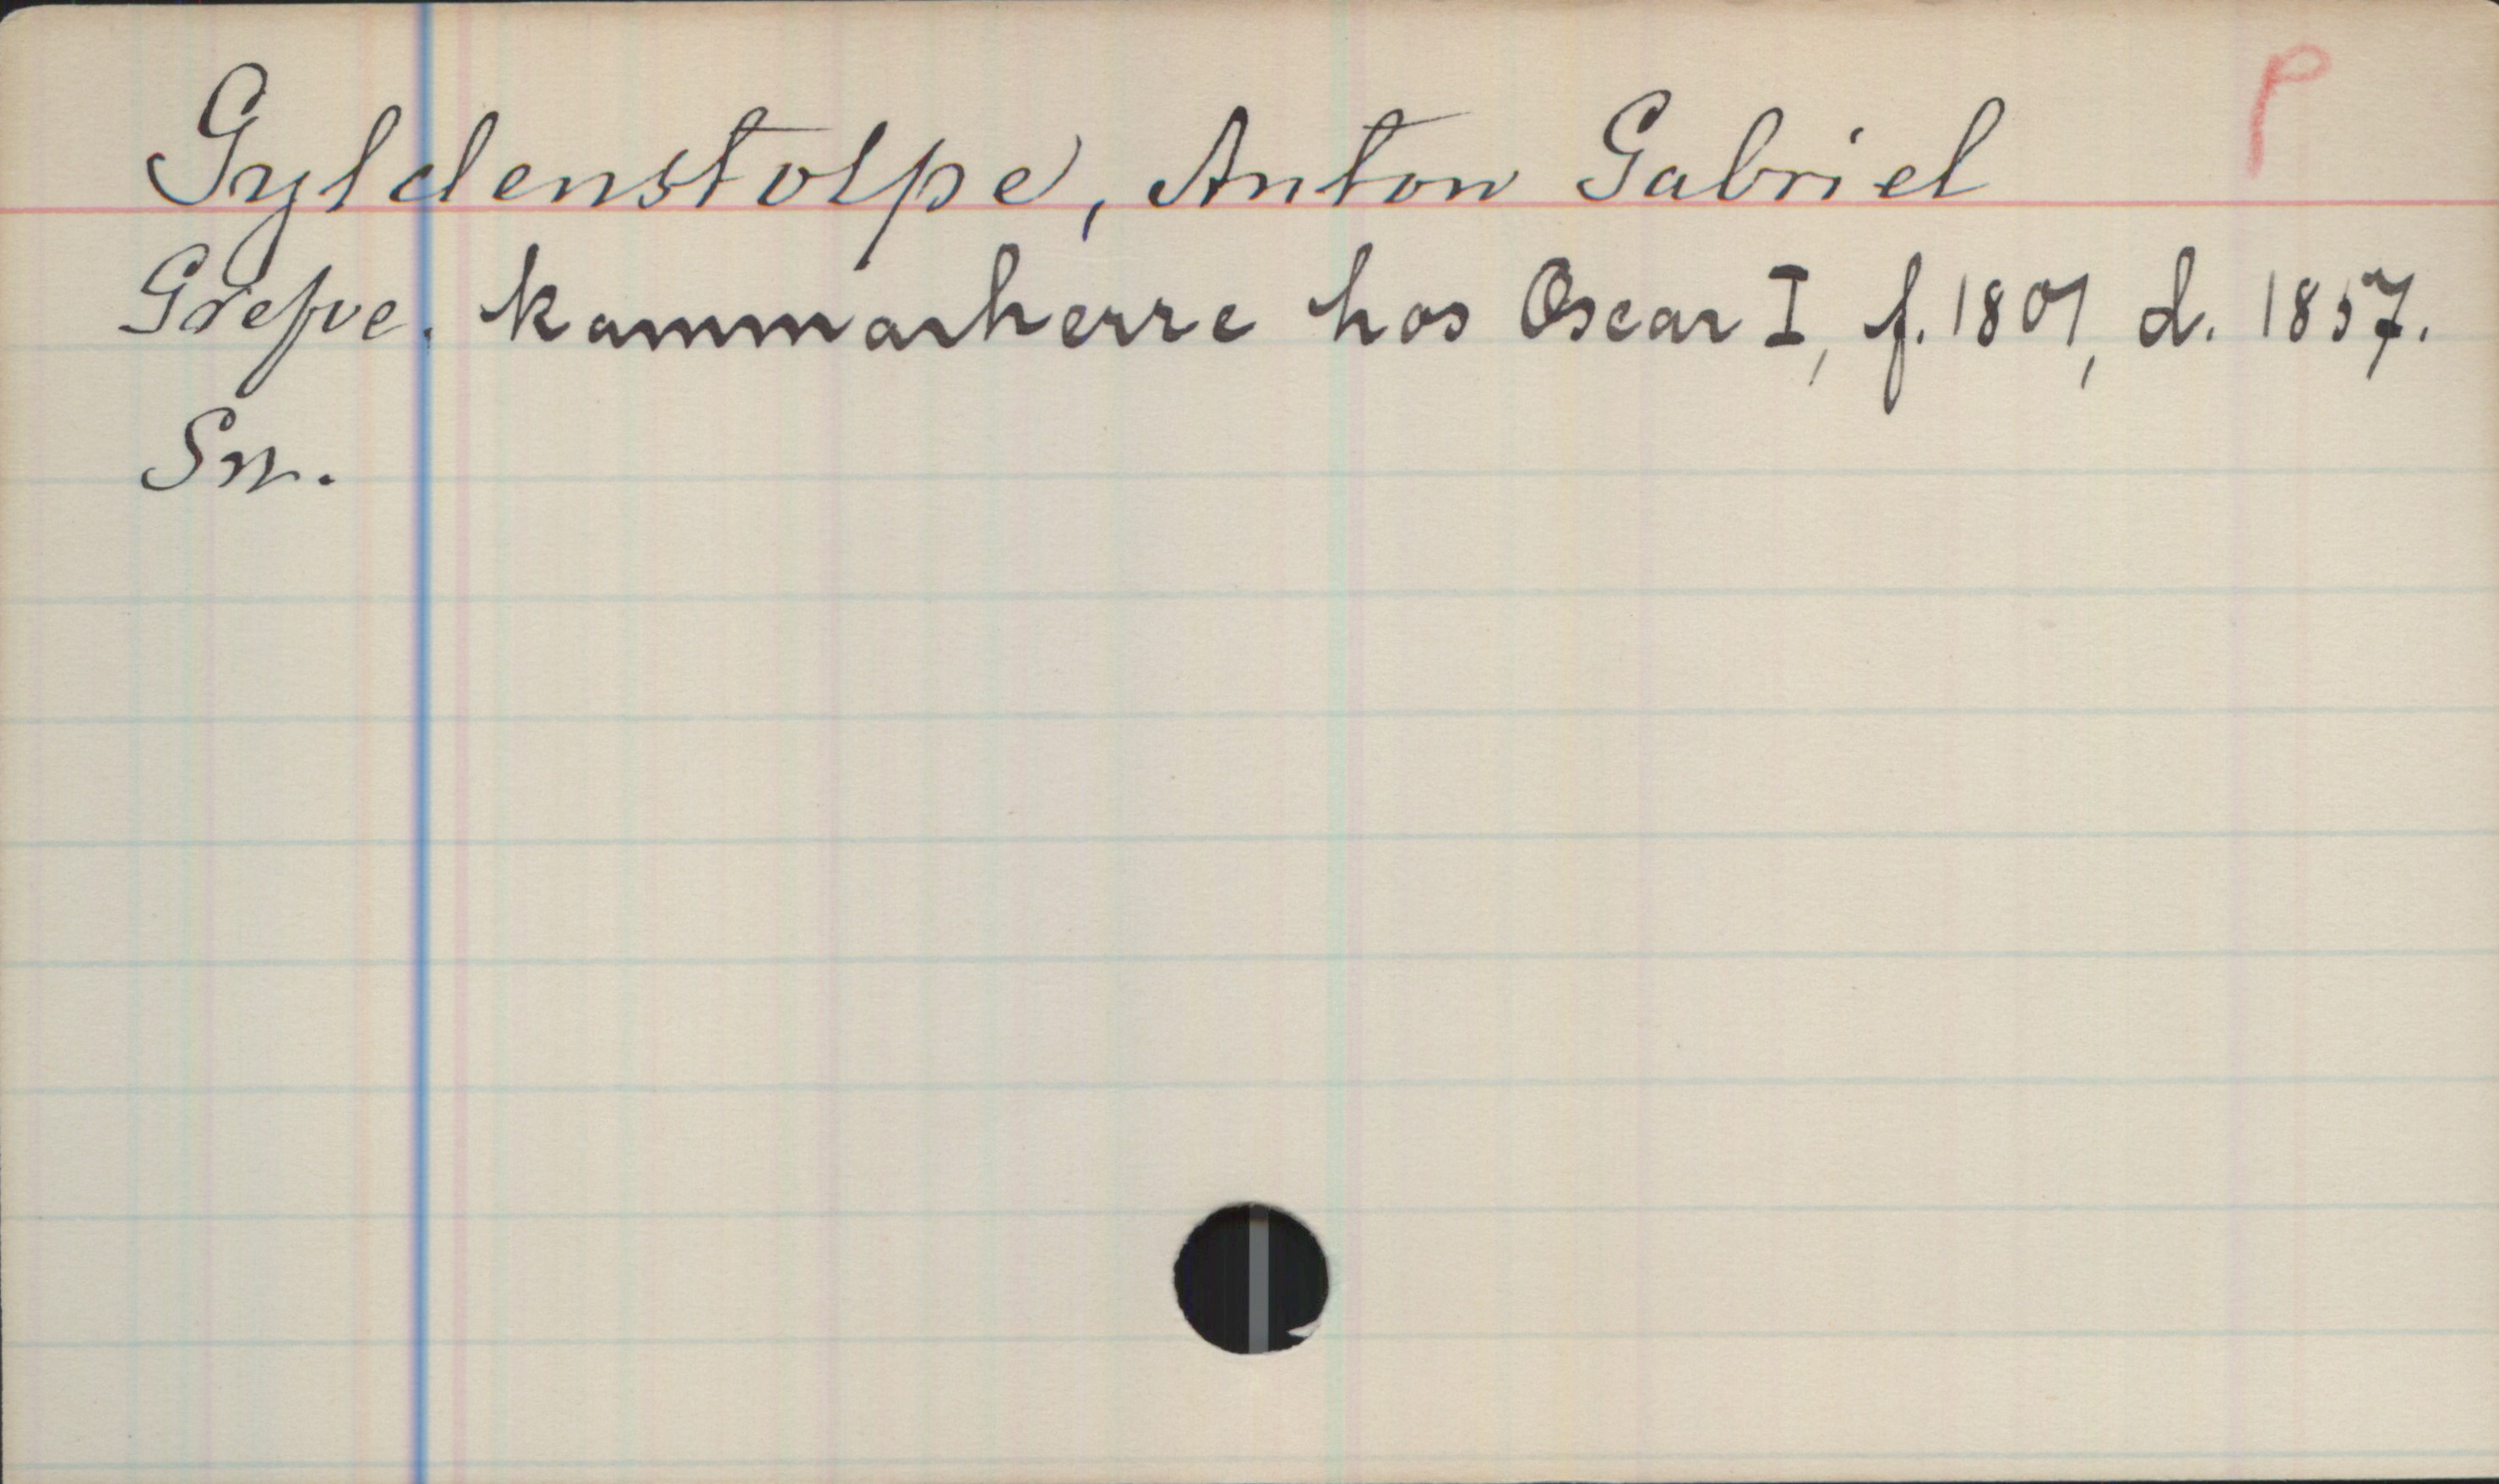 P
Gyldenstolpe, Anton Gabriel
Grefve. kammarherre hos Oscar I, f. 1801, d. 1857.
Sn.